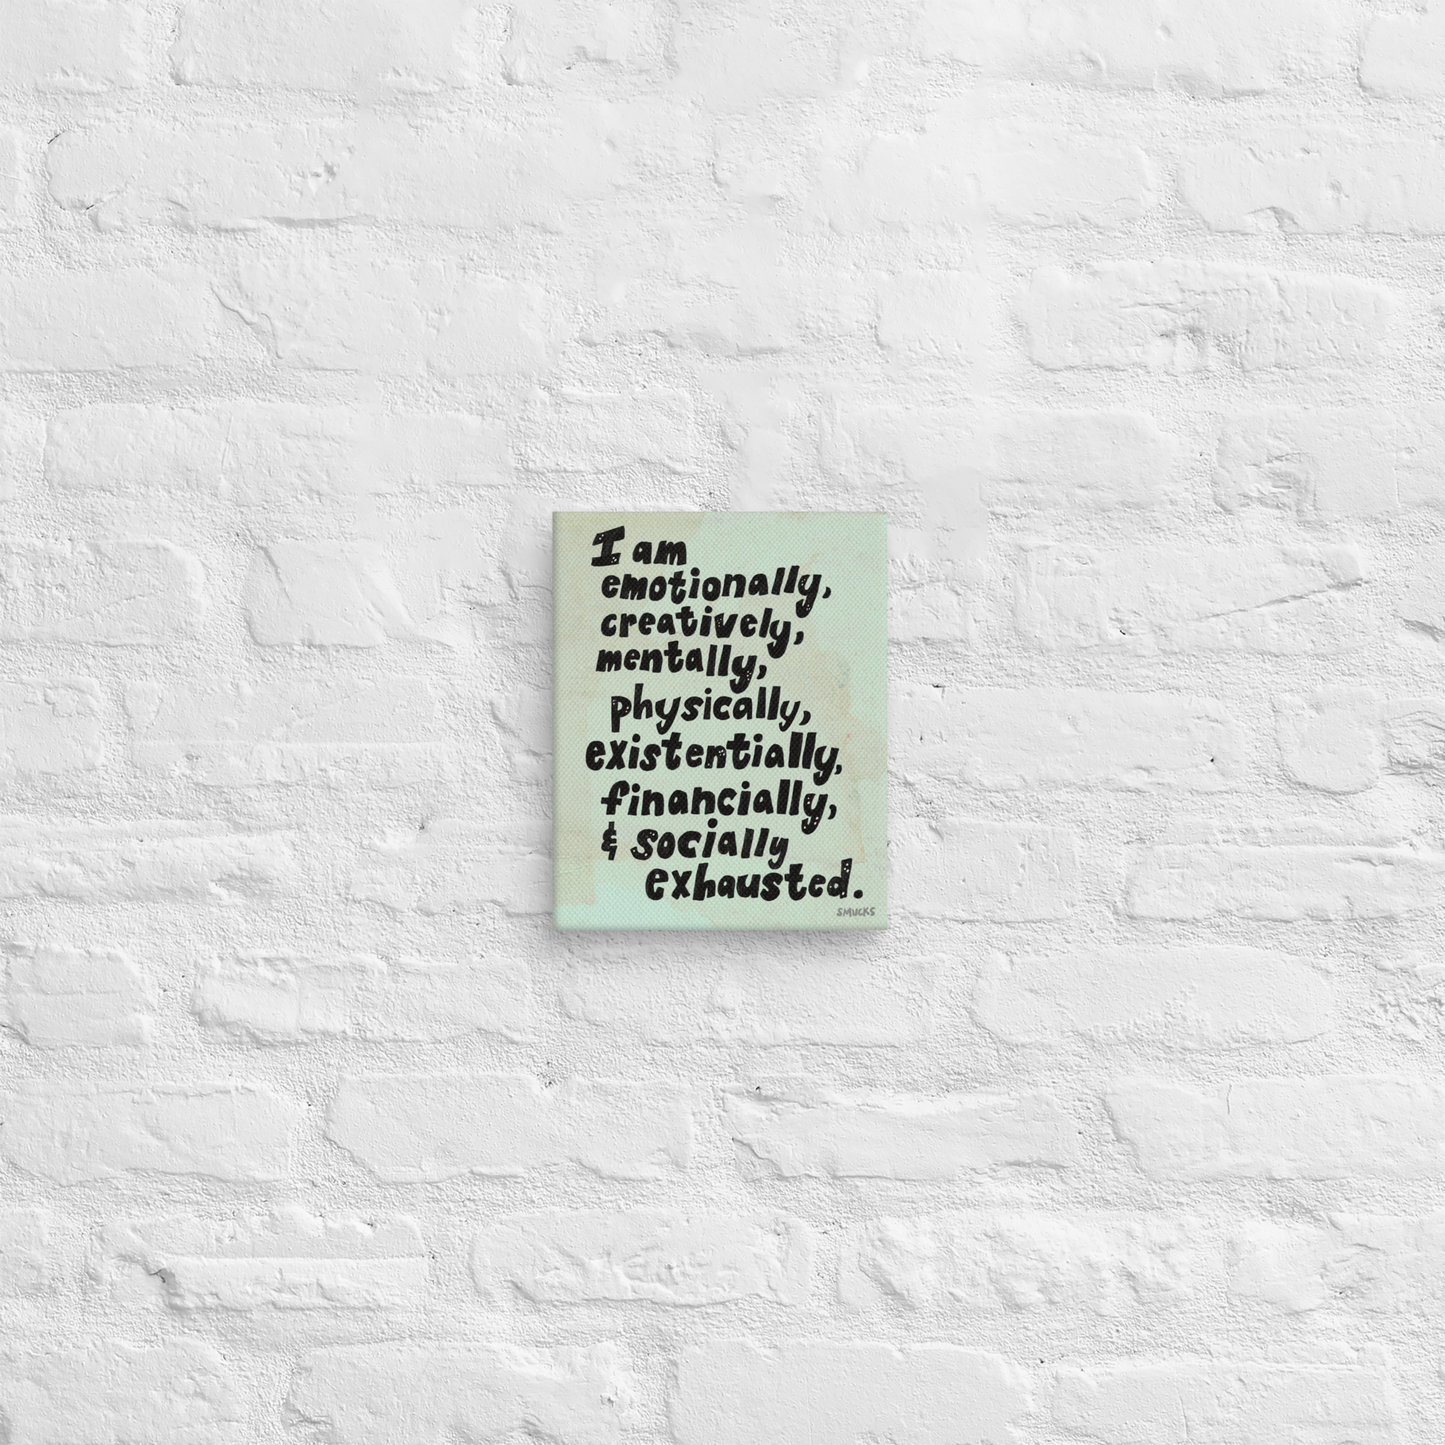 I am
emotionally,
creatively,
mentally,
physically,
existentially,
financially,
& socially
exhausted.
SMUCKS